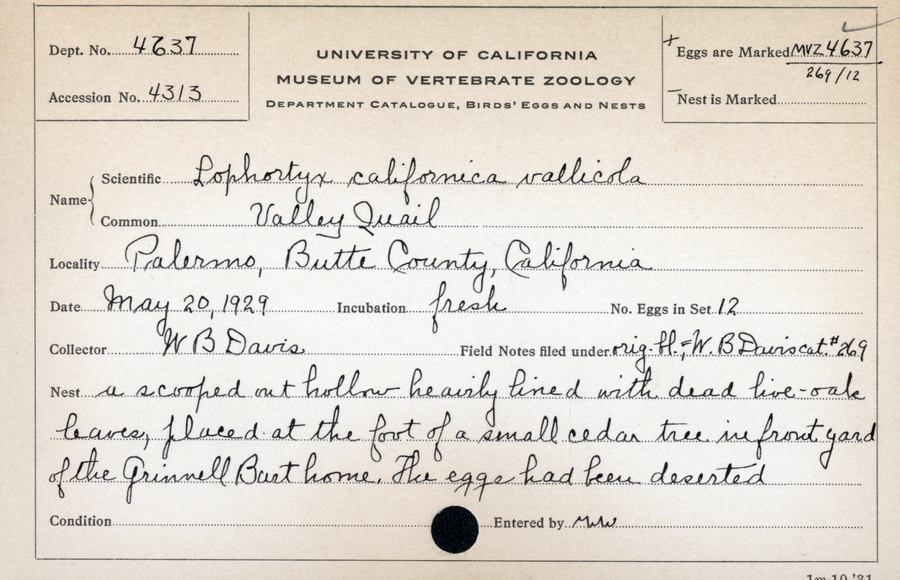 Dept. No. 4637
Accession No. 4313
UNIVERSITY OF CALIFORNIA
MUSEUM OF VERTEBRATE ZOOLOGY
DEPARTMENT CATALOGUE, BIRDS' EGGS AND NESTS
+ Eggs are Marked MVZ 4637
269/12
– Nest is Marked
Name { Scientific Lophortyx californica vallicola
Common Valley Quail
Locality Palermo, Butte County, California
Date May 20, 1929 Incubation fresh No. Eggs in Set 12
Collector W B Davis Field Notes filed under orig. W. B Davis cat. #269
Nest a scooped out hollow heavily lined with dead live-oak
leaves, placed at the foot of a small cedar tree in front yard
of the Grinnell Bart home. The eggs had been deserted
Condition Entered by
1m-10 '31